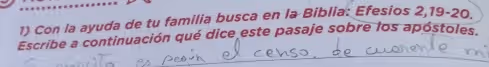 1) Con la ayuda de tu familia busca en la Biblia: Efesios 2,19-20.
Escribe a continuación qué dice este pasaje sobre los apóstoles.
el censo. de